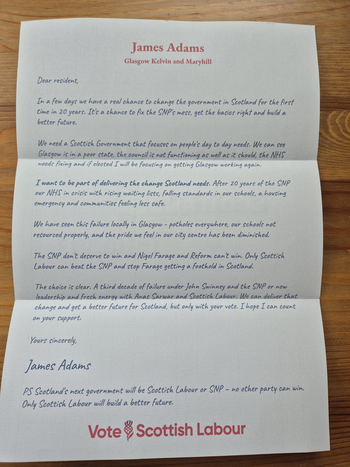 James Adams
Glasgow Kelvin and Maryhill
Dear resident,
In a few days we have a real chance to change the government in Scotland for the first
time in 20 years. It's a chance to fix the SNP's mess, get the basics right and build a
better future.
We need a Scottish Government that focuses on people's day to day needs. We can see
Glasgow is in a poor state, the council is not functioning as well as it should, the NHS
needs fixing and if elected I will be focusing on getting Glasgow working again.
I want to be part of delivering the change Scotland needs. After 20 years of the SNP
our NHS in crisis with rising waiting lists, falling standards in our schools, a housing
emergency and communities feeling less safe.
We have seen this failure locally in Glasgow - potholes everywhere, our schools not
resourced properly, and the pride we feel in our city centre has been diminished.
The SNP don't deserve to win and Nigel Farage and Reform can't win. Only Scottish
Labour can beat the SNP and stop Farage getting a foothold in Scotland.
The choice is clear. A third decade of failure under John Swinney and the SNP or new
leadership and fresh energy with Anas Sarwar and Scottish Labour. We can deliver that
change and get a better future for Scotland, but only with your vote. I hope I can count
on your support.
Yours sincerely,
James Adams
PS Scotland's next government will be Scottish Labour or SNP – no other party can win.
Only Scottish Labour will build a better future.
Vote Scottish Labour